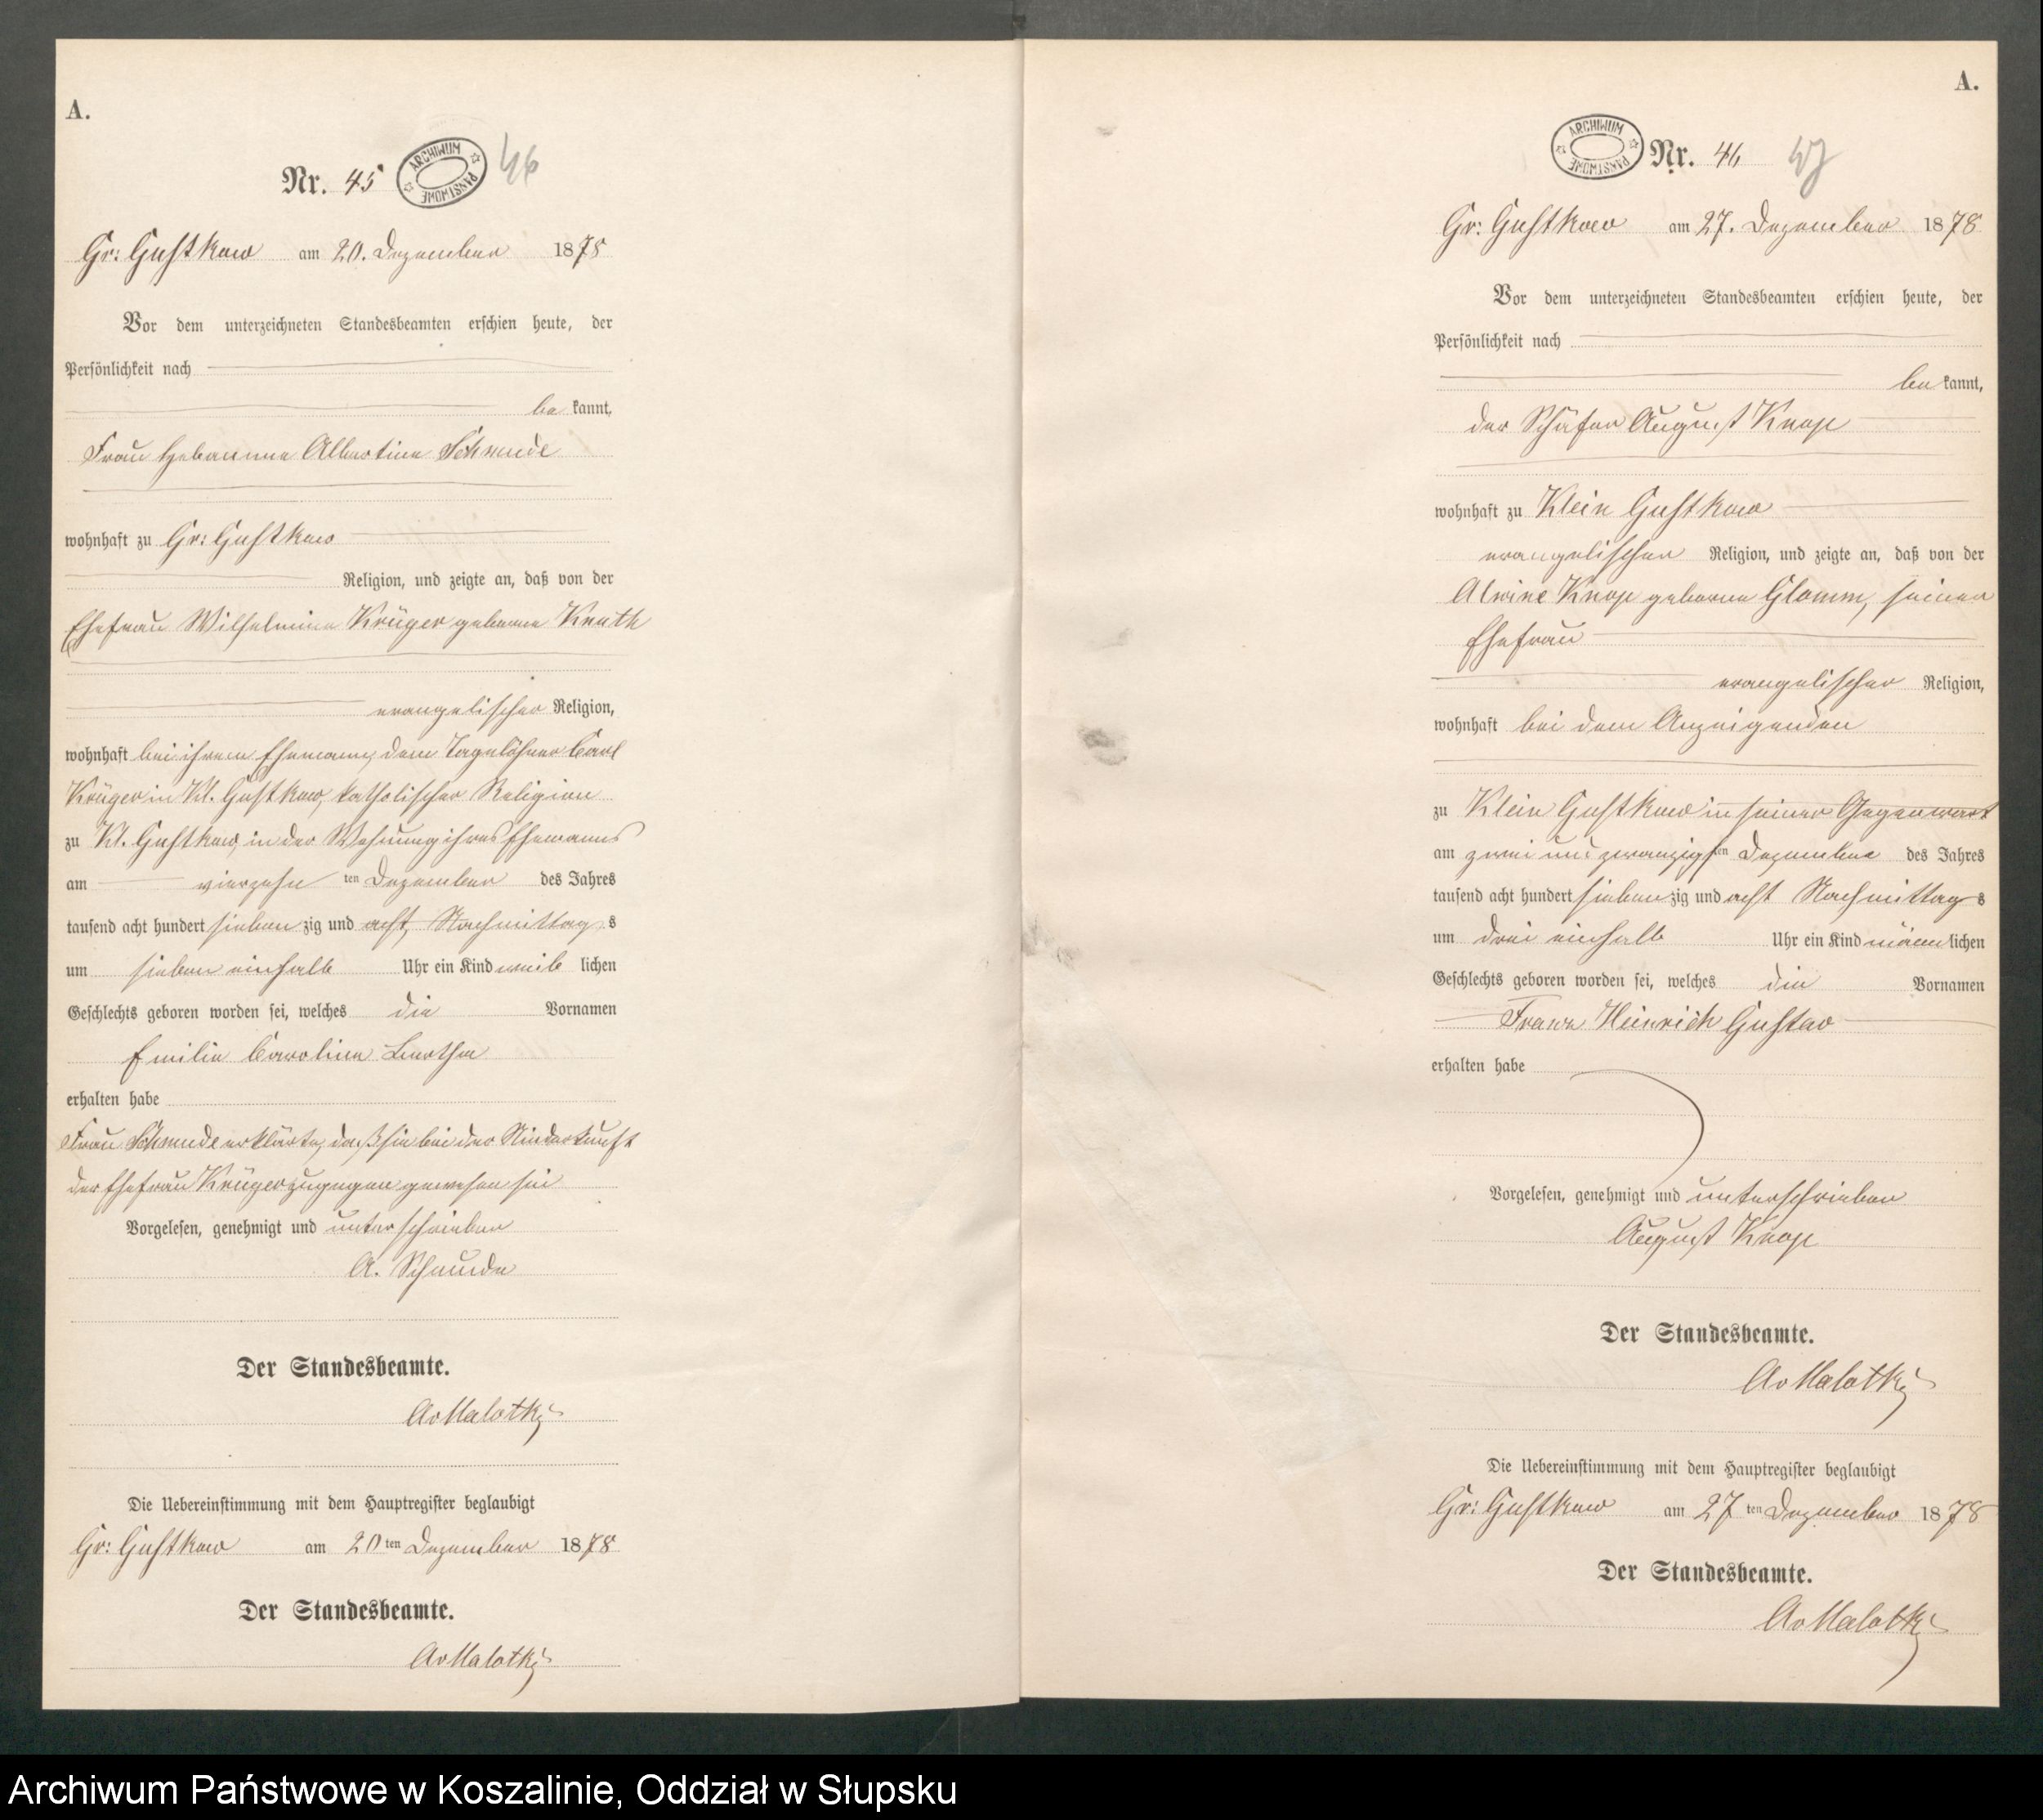 A.
Nr. 45
ARCHIWUM PAŃSTWOWE
46
Gr: Gustkow am 20. Dezember 1878
Vor dem unterzeichneten Standesbeamten erschien heute, der
Persönlichkeit nach
be kannt,
Frau Hebamme Albertine Schmude
wohnhaft zu Gr: Gustkow
Religion, und zeigte an, daß von der
Ehefrau Wilhelmine Krüger geborne Knuth
evangelischer Religion,
wohnhaft bei ihrem Ehemann, dem Tagelöhner Carl
Krüger in Kl. Gustkow, katholischer Religion
zu Kl. Gustkow, in der Wohnung ihres Ehemanns
am vierzehn ten Dezember des Jahres
tausend acht hundert sieben zig und acht, Nachmittag s
um sieben einhalb Uhr ein Kind weib lichen
Geschlechts geboren worden sei, welches die Vornamen
Emilie Caroline Bertha
erhalten habe
Frau Schmude erklärte, daß sie bei der Niederkunft
der Ehefrau Krüger zugegen gewesen sei
Vorgelesen, genehmigt und unterschrieben
A. Schmude
Der Standesbeamte.
AvMalotki
Die Uebereinstimmung mit dem Hauptregister beglaubigt
Gr: Gustkow am 20 ten Dezember 1878
Der Standesbeamte.
AvMalotki
A.
ARCHIWUM PAŃSTWOWE
Nr. 46
47
Gr: Gustkow am 27. Dezember 1878
Vor dem unterzeichneten Standesbeamten erschien heute, der
Persönlichkeit nach
be kannt,
der Schäfer August Knop
wohnhaft zu Klein Gustkow
evangelischer Religion, und zeigte an, daß von der
Alwine Knop geborne Glamm, seiner
Ehefrau
evangelischer Religion,
wohnhaft bei dem Anzeigenden
zu Klein Gustkow in seiner Gegenwart
am zwei und zwanzigs ten Dezember des Jahres
tausend acht hundert sieben zig und acht Nachmittag s
um drei einhalb Uhr ein Kind männ lichen
Geschlechts geboren worden sei, welches die Vornamen
Franz Heinrich Gustav
erhalten habe
Vorgelesen, genehmigt und unterschrieben
August Knop
Der Standesbeamte.
AvMalotki
Die Uebereinstimmung mit dem Hauptregister beglaubigt
Gr: Gustkow am 27 ten Dezember 1878
Der Standesbeamte.
AvMalotki
Archiwum Państwowe w Koszalinie, Oddział w Słupsku